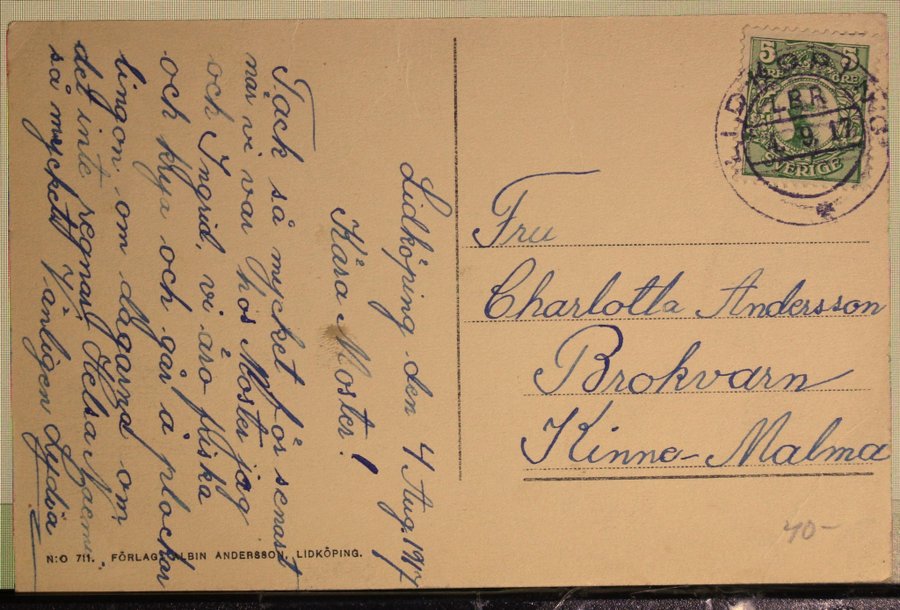 Lidköping den 4 Aug. 1917
Kära Moster!
Tack så mycket för senast
när vi var hos Moster jag
och Ingrid. vi äro friska
och krya och går å plockar
lingon. om dagarna om
det inte regnar. Helsa
så mycket. Vänligen Lydia
5 5
SVERIGE
LIDKÖPING
LBR
4. 9. 17
Fru
Charlotta Andersson
Brokvarn
Kinne-Malma
40-
N:O 711. FÖRLAG: ALBIN ANDERSSON, LIDKÖPING.